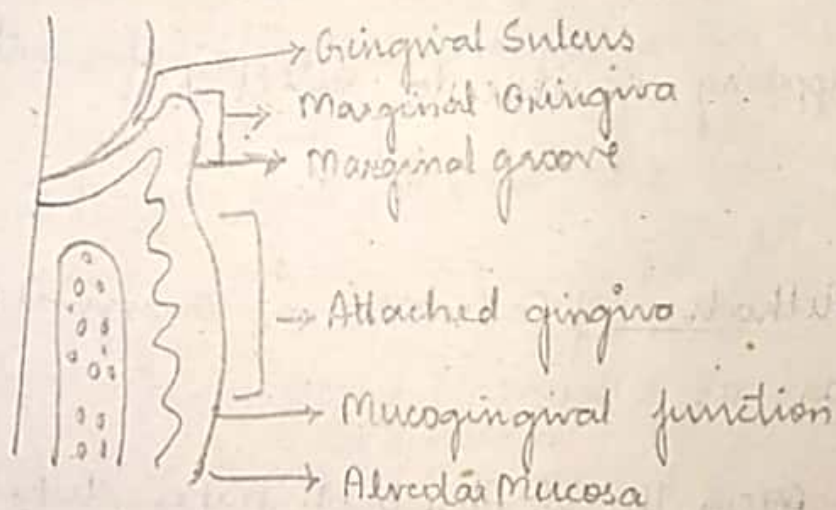 Gingival Sulcus
Marginal Gingiva
Marginal groove
Attached gingiva
Mucogingival function
Alveolar Mucosa